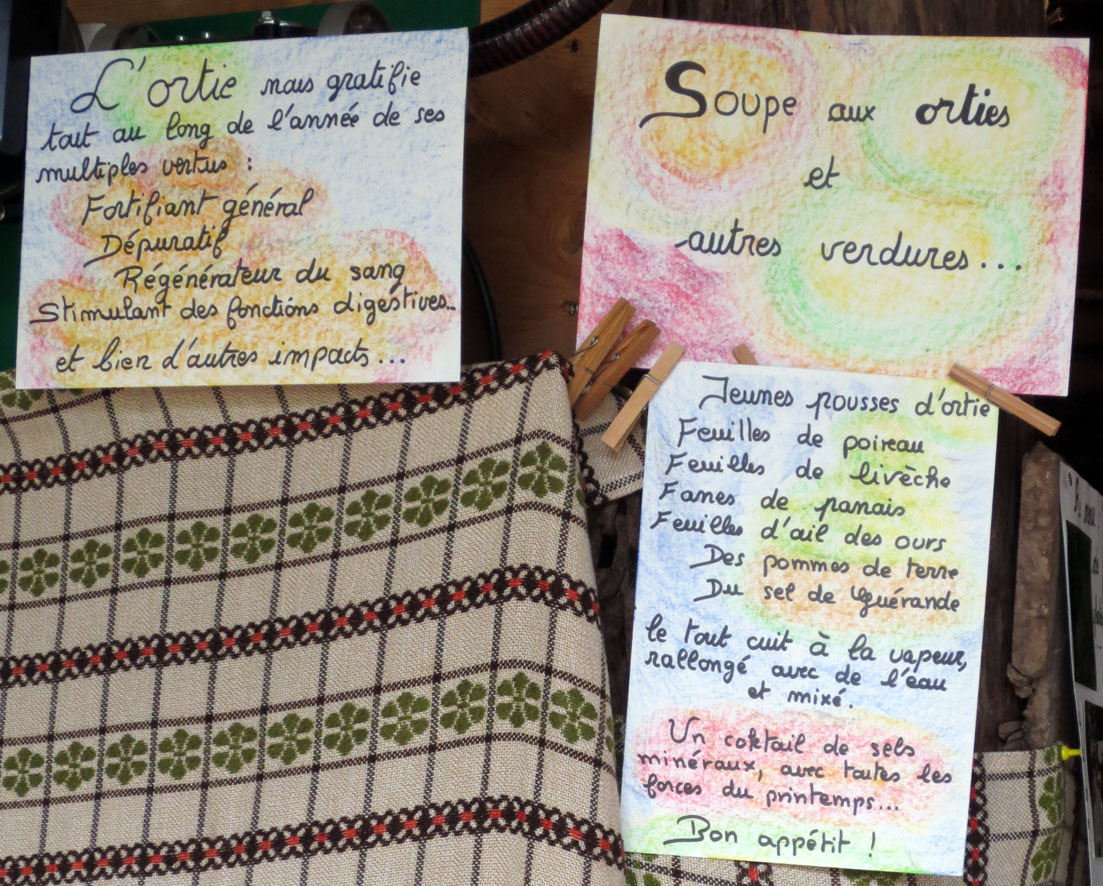 L'ortie nous gratifie
tout au long de l'année de ses
multiples vertus :
Fortifiant général
Dépuratif
Régénérateur du sang
Stimulant des fonctions digestives...
et bien d'autres impacts...
Soupe aux orties
et
autres verdures...
Jeunes pousses d'ortie
Feuilles de poireau
Feuilles de livèche
Fanes de panais
Feuilles d'ail des ours
Des pommes de terre
Du sel de Guérande
le tout cuit à la vapeur,
rallongé avec de l'eau
et mixé.
Un coktail de sels
minéraux, avec toutes les
forces du printemps...
Bon appétit !